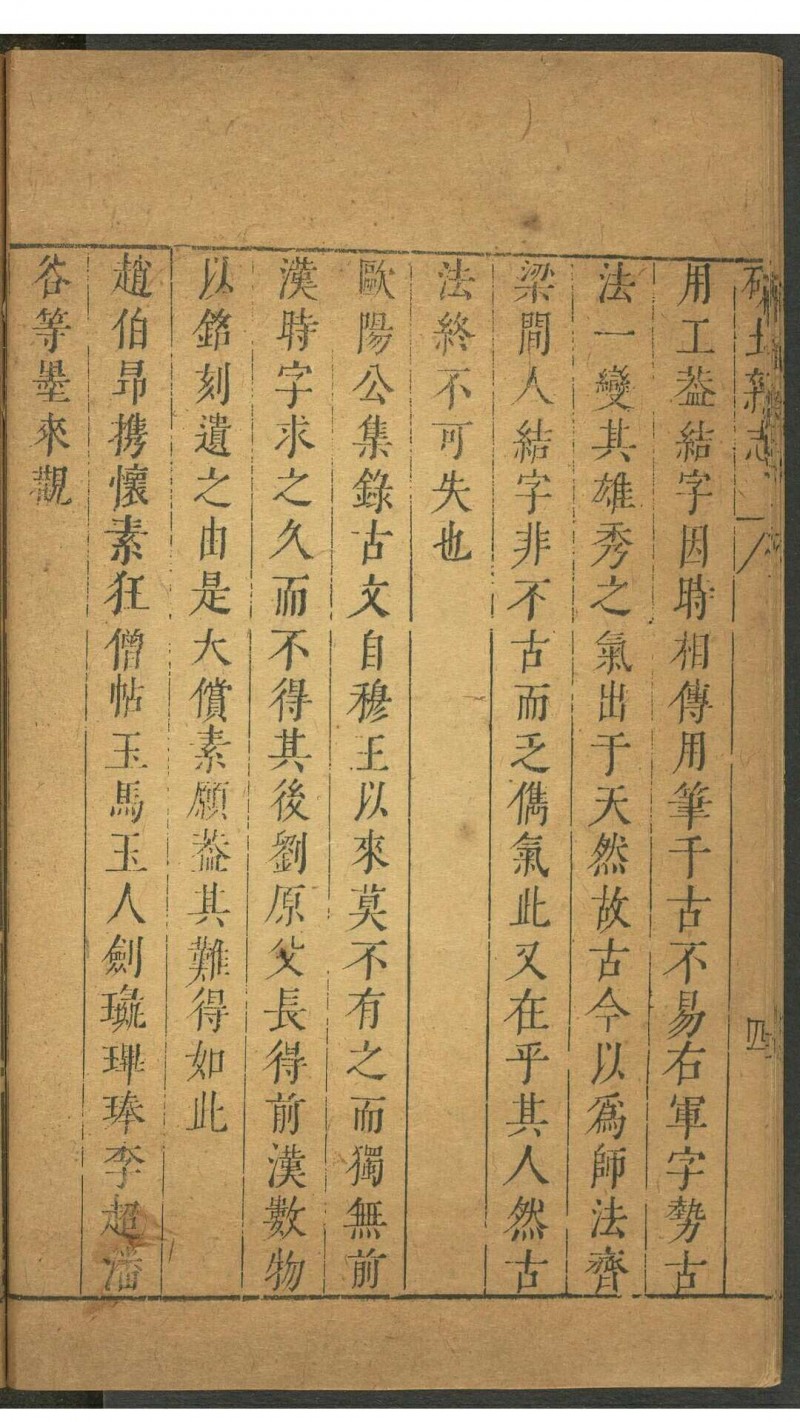 研北雜志 上 四
用工葢結字因時相傳用筆千古不易右軍字勢古
法一變其雄秀之氣出于天然故古今以爲師法齊
梁間人結字非不古而乏儁氣此又在乎其人然古
法終不可失也
歐陽公集錄古文自穆王以來莫不有之而獨無前
漢時字求之久而不得其後劉原父長得前漢數物
以銘刻遺之由是大償素願葢其難得如此
趙伯昻携懷素狂僧帖玉馬玉人劍璏琕琫李超潘
谷等墨來觀